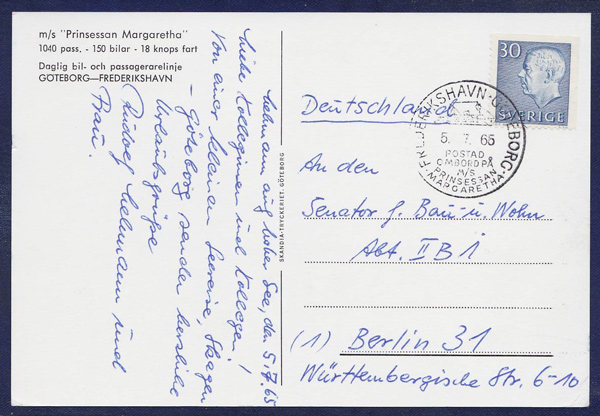 m/s "Prinsessan Margaretha"
1040 pass. - 150 bilar - 18 knops fart
Daglig bil- och passagerarelinje
GÖTEBORG—FREDERIKSHAVN
auf hoher See, den 5.7.65
Liebe Kolleginnen und Kollegen!
Von einer kleinen Seereise, Skagen
- Göteborg sendet herzliche
Urlaubsgrüße
Rudolf Lehmann und
Frau.
SKANDIA-TRYCKERIET, GÖTEBORG
30
SVERIGE
FREDERIKSHAVN-GÖTEBORG
5. 7. 65
POSTAD
OMBORD PÅ
M/S
PRINSESSAN
MARGARETHA
Deutschland
An den
Senator f. Bau- u. Wohn
Abt. II B 1
(1) Berlin 31
Württembergische Str. 6-10